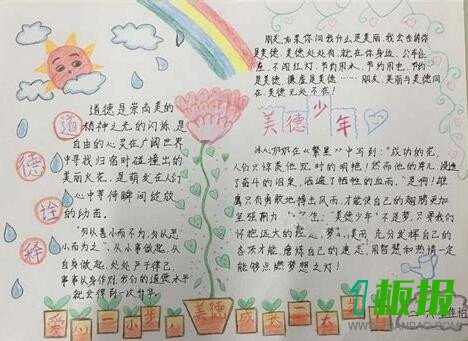 朋友,如果你问我什么是美丽,我会告诉你
是美德,美德处处有,就在你身边,公车让
座,不闯红灯,节约用水,节约用电,节约
是美德,谦虚是美德……朋友,美丽与美德同
在,美德无处不在!
美德少年
道德诠释
道德是崇尚美的
精神之光的闪烁,是
自由的心灵在广阔世界
中寻找归宿时碰撞出的
美丽火花,是萌发在人们
心中等待瞬间绽放
的幼苗。
"勿以善小而不为,勿以恶
小而为之",从小事做起,从
自身做起,处处严于律己,
事事以身作则,我们的道德水平
就会得到一次升华。
冰心奶奶在《繁星》中写到:"成功的花,
人们只惊羡他现时的明艳!然而他的芽儿,浸透
了奋斗的泪泉,洒遍了牺牲的血雨。"是啊!雄
鹰只有勇敢地搏出风雨,才能使自己的翅膀更加
坚强
"美德少年"不是梦,只要我们
好把远大的
充分发挥自己的
各项才能,磨炼自己的意志,用智慧和热情一定
能够点燃梦想之灯!
爱
小
步
美德
成长
大
1板报